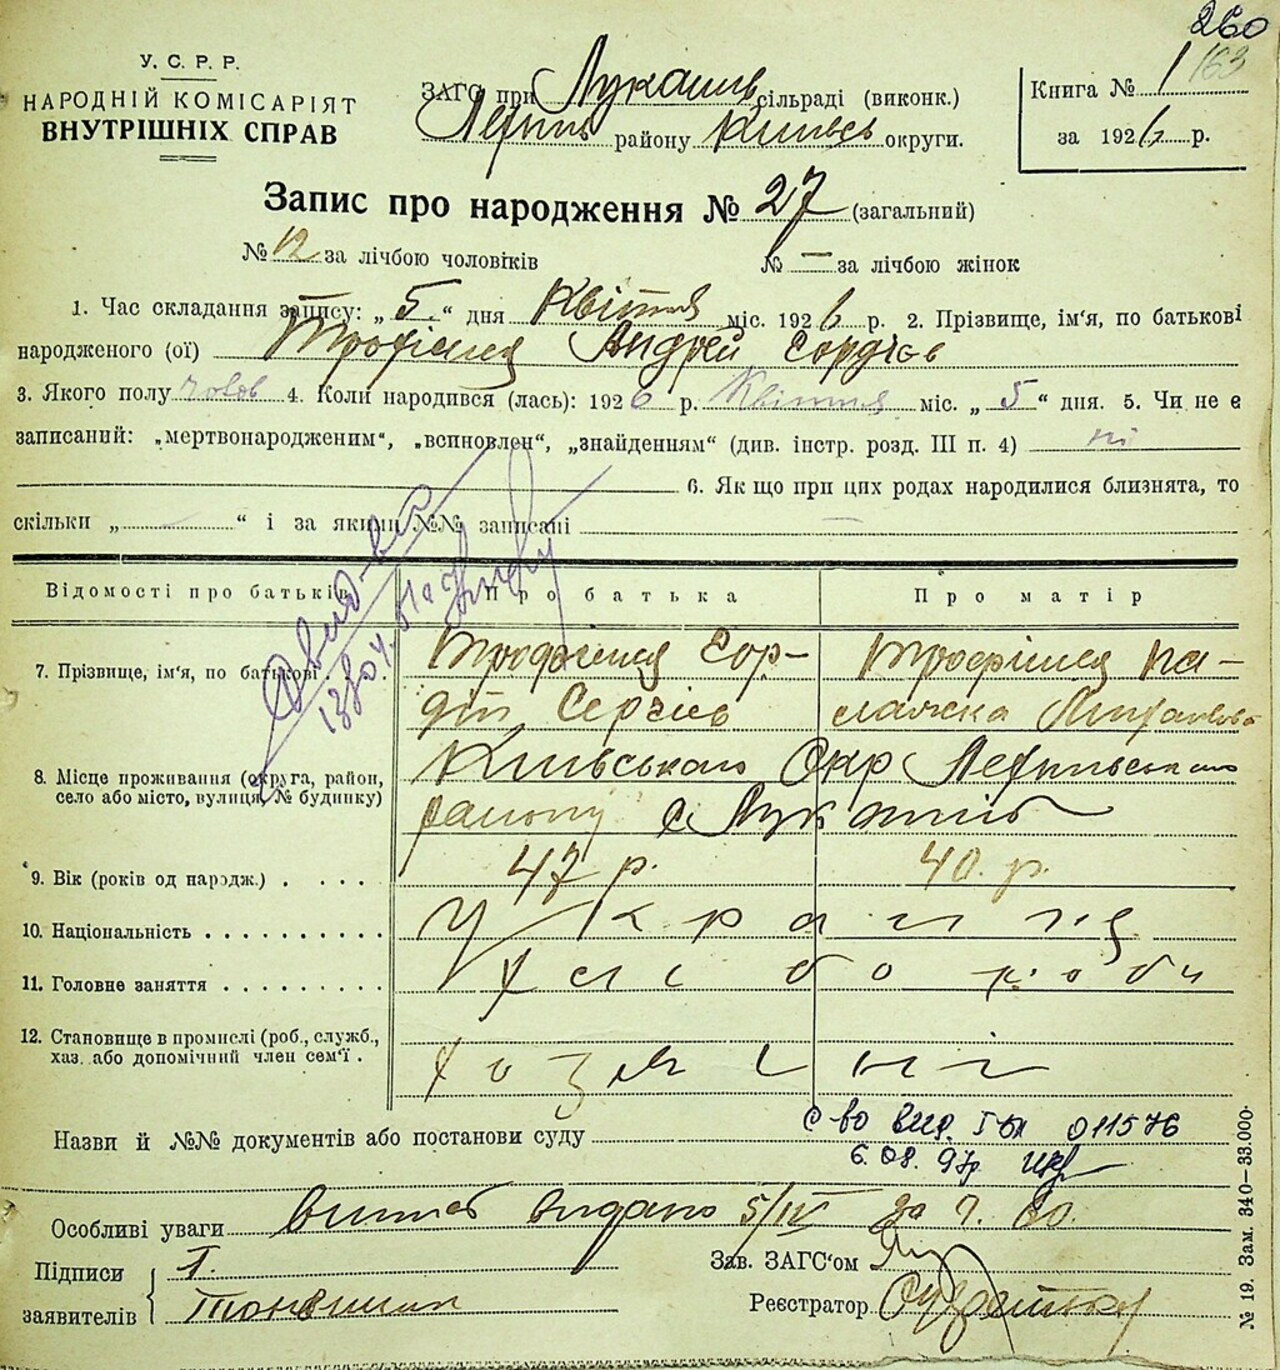 260
163
У. С. Р. Р.
НАРОДНІЙ КОМІСАРІЯТ
ВНУТРІШНІХ СПРАВ
ЗАГС при Лукашів сільраді (виконк.)
району Київськ округи.
Книга № 1
за 1926 р.
Запис про народження № 27 (загальний)
№ 12 за лічбою чоловіків № — за лічбою жінок
1. Час складання запису: „ 5 “ дня Квітня міс. 1926 р. 2. Прізвище, ім'я, по батькові
народженого (ої) Андрей
3. Якого полу чолов 4. Коли народився (лась): 1926 р. Квітня міс. „ 5 “ дня. 5. Чи не є
записаний: „мертвонародженим“, „всиновлен“, „знайденням“ (див. інстр. розд. III п. 4) ні
6. Як що при цих родах народилися близнята, то
скільки „ “ і за якими №№ записані
Відомості про батьків Про батька Про матір
7. Прізвище, ім'я, по батькові Гор-
дій Сергіїв
8. Місце проживання (округа, район,
село або місто, вулиця, № будинку) Київського Окр
району с
9. Вік (років од народж.) 47 р. 40. р.
10. Національність Українц
11. Головне заняття Хлібороби
12. Становище в промислі (роб., служб.,
хаз. або допомічний член сем'ї . хозяїни
Назви й №№ документів або постанови суду с-во вид. I БК 011576
6. 08. 97р.
Особливі уваги витяг видано 5/IV за ч. 60.
Підписи 1.
заявителів
Зав. ЗАГС'ом
Реєстратор
№ 19. Зам. 340—33.000.